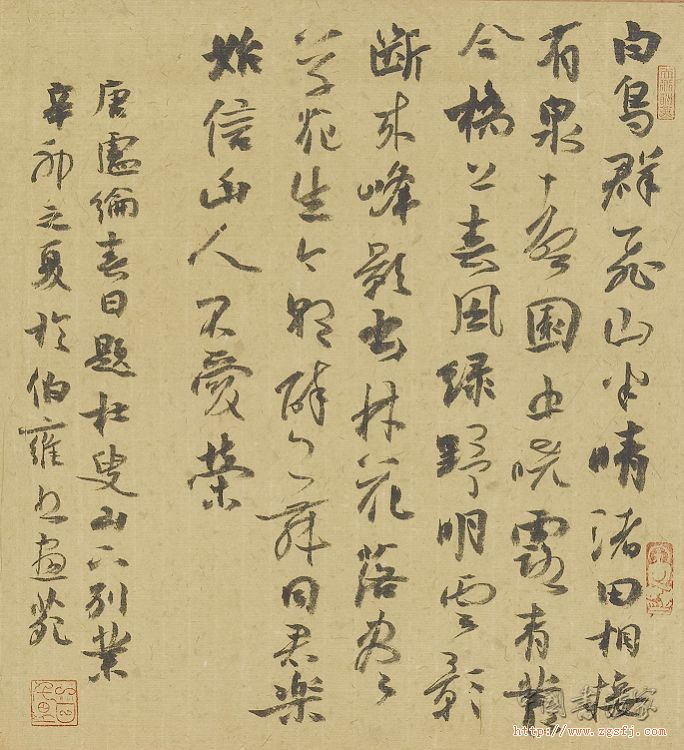 白鳥群飛山半晴渚田相接
有泉聲園中曉露青叢
合橋上春風綠野明雲影
斷來峰影出林花落盡
草花生今朝醉舞同君樂
始信幽人不愛榮
唐盧綸春日題杜叟山下別業
辛卯之夏於伯雍書畫苑
http://www.zgsfj.com